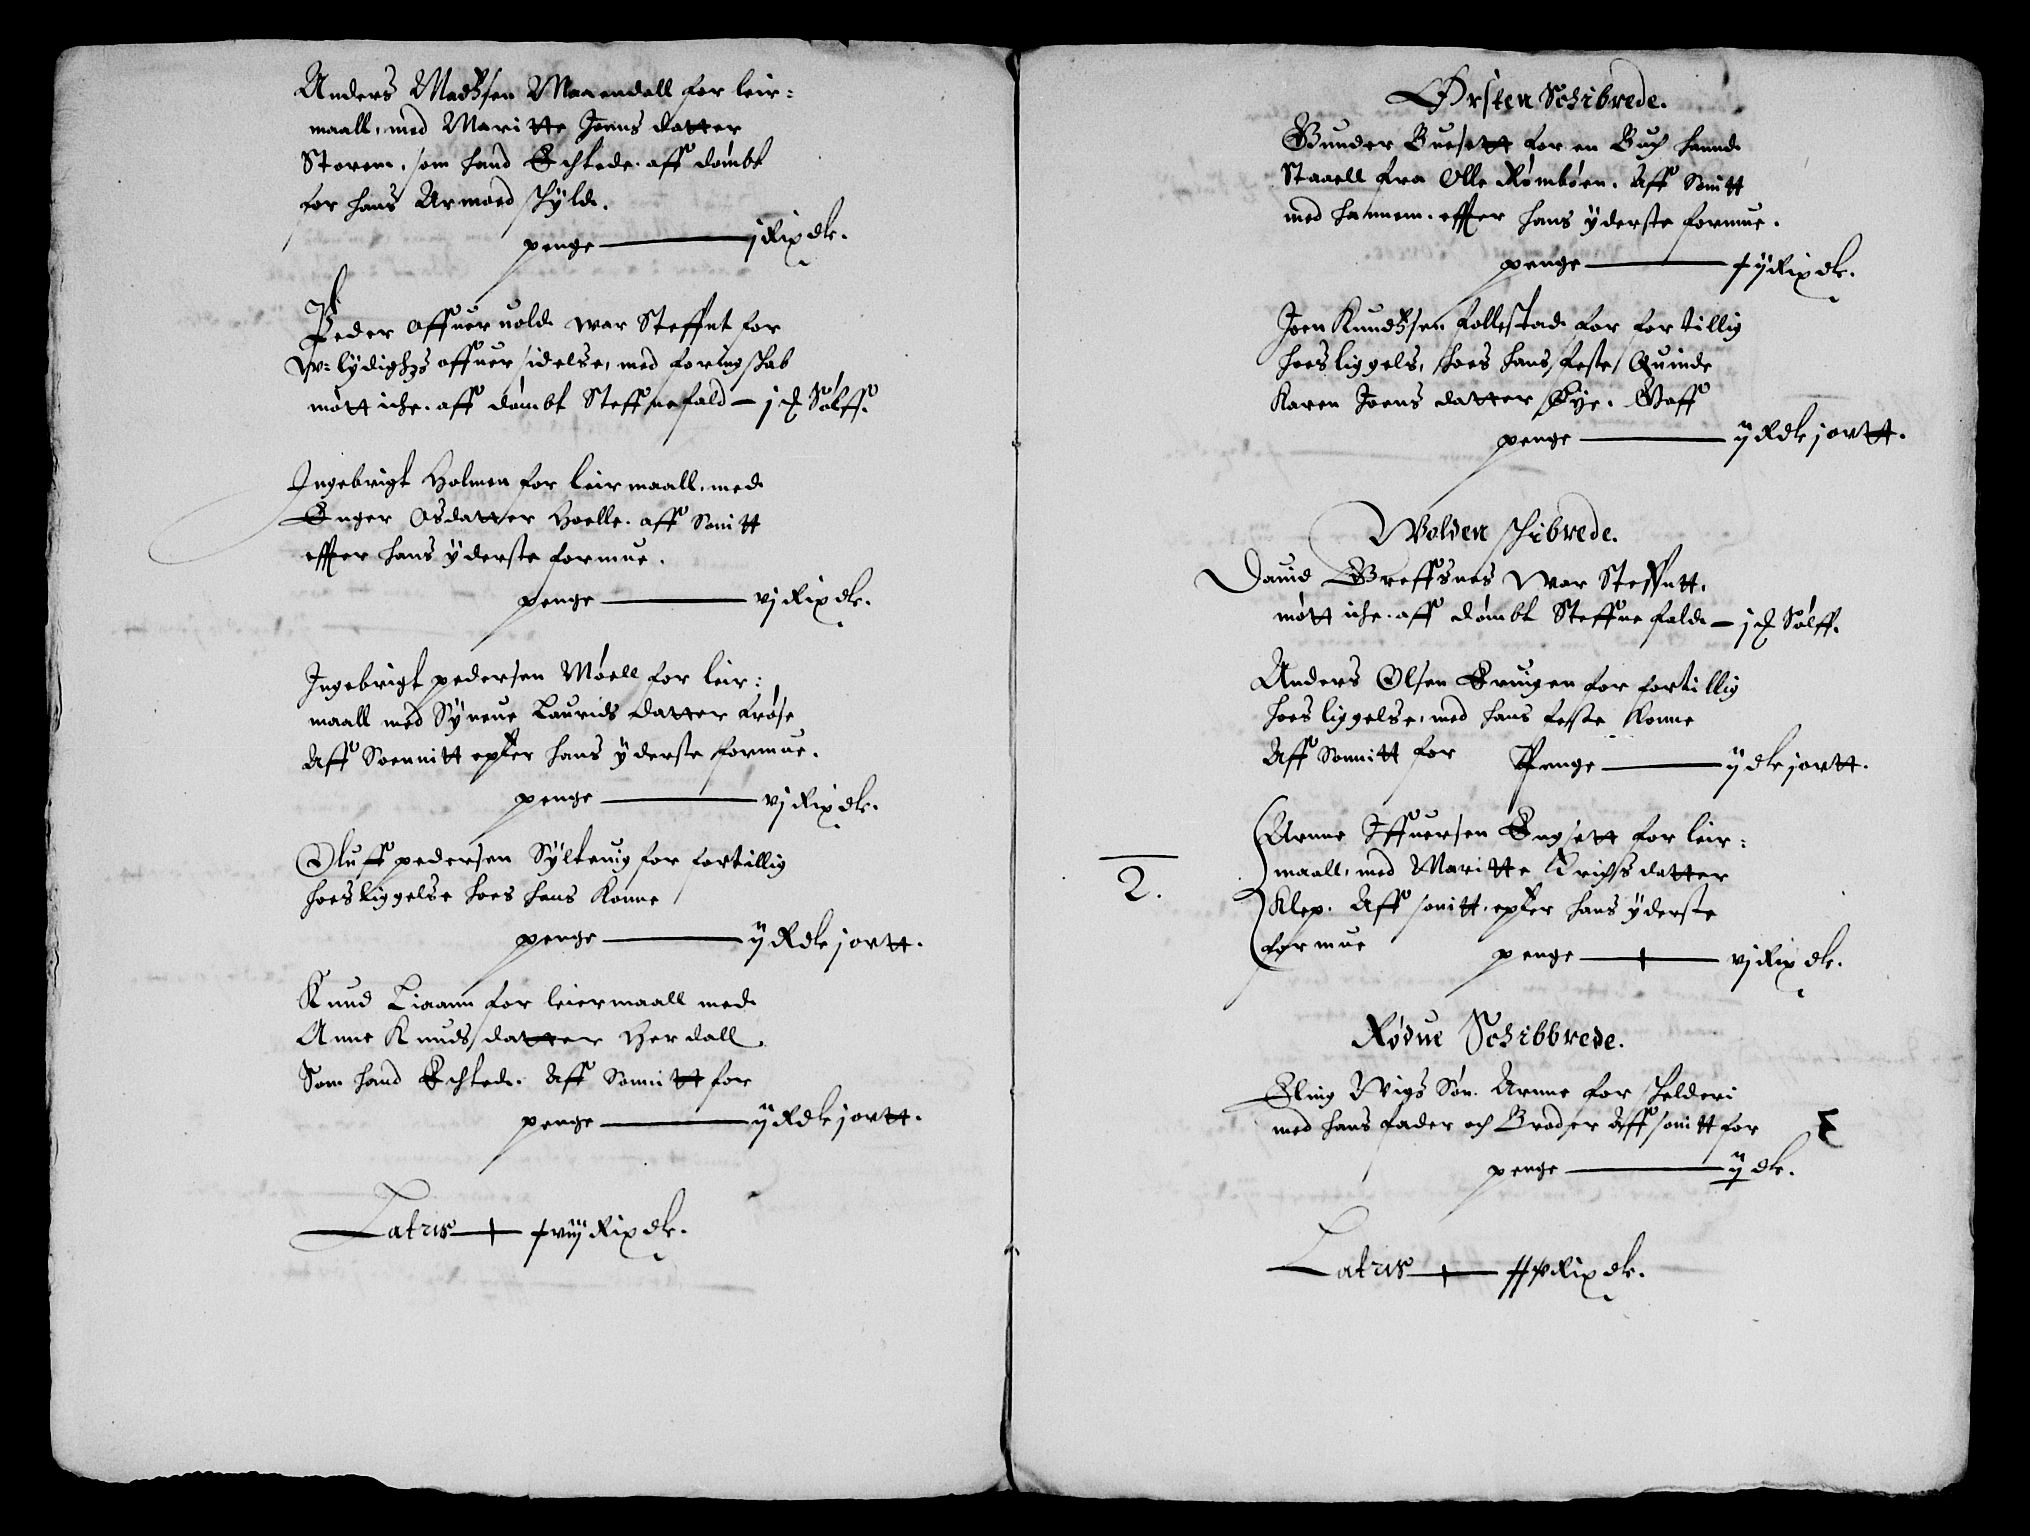 Anders Madtzsen Marendall for leir=
maall, med Maritte Joens datter
Storem, som hand Echtede. aff dømbt
for hans Armoed schyld.
penge — j Rix dlr.
Peder Affueruold war Steffnt for
W=lydighetz offuer sidelse, med foringschab
møtt iche. aff dømbt Steffnefald — j ₰ Sølff.
Ingebrigt Holmen for leirmaall, med
Enger Osdatter Hoelle. aff Sonitt
effter hans yderste formue.
penge — vj Rix dlr.
Ingebrigt pedersen Møell for leir:
maall med Syneue Laurids datter Frøse
Aff Soennitt epter hans yderste formue.
penge — vj Rix dlr.
Oluff pedersen Sylteuig for fortillig
hoesliggelse hoes hans Konne
penge — ij R dlr j ortt.
Knud Liaann for leiermaall med
Anne Knuds datter Herdall
Som hand Echtede. Aff Sonnitt for
penge — ij R dlr j ortt.
Latris — xviij Rix dlr.
Ørsten Schibrede.
Gunder Buesett for en Buch hannd
Staaell fra Olle Rømbøen. Aff Sonitt
med hannem. effter hans yderste formue.
penge — xij Rix dlr.
Joen Knudtzsen Follestad for fortillig
hoesliggels, hoes hans feste Quinde
Karen Joens datter Øye. Gaff
penge — ij R dlr j ortt.
Wolden schibrede.
Dauid Greffsnes War Steffntt,
møtt iche. aff dømbt Steffne fald — j ₰ Sølff.
Anders Olsen Eruigen for fortillig
hoesliggelse, med hans feste Konne
Aff Sonnitt for Penge — ij dlr j ortt.
Arnne Iffuersen Engsett for leir=
maall, med Maritte Erichsdatter
2.
Klep. Aff sonitt, epter hans yderste
formue penge — vj Rix dlr.
Rødue Schibbrede.
Eling Wigs Søn. Arnne for schelderi
med hans fader och Broder Aff sonitt for
penge — ij dlr.
Latris — xxv Rix dlr.